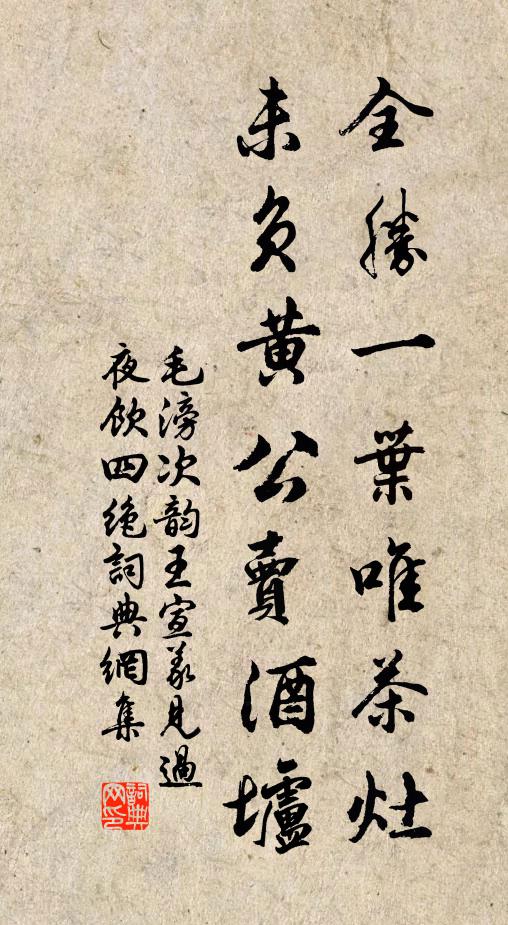 全勝一葉唯茶灶
未負黄公賣酒壚
毛滂次韵王宣義見過
夜飲四絶詞典網集
詞典
网印